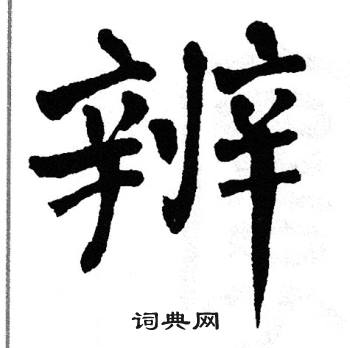 辨
词典网